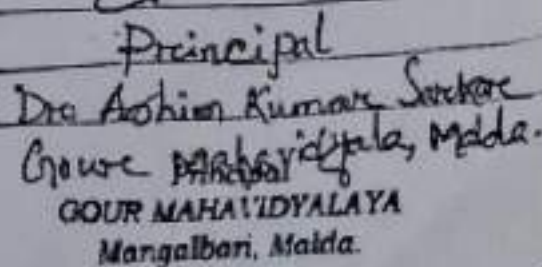 Preincipal
Dre Ashim Kumare Sarkare
Goure Mahavidyala, Malda.
GOUR MAHAVIDYALAYA
Mangalbari, Malda.